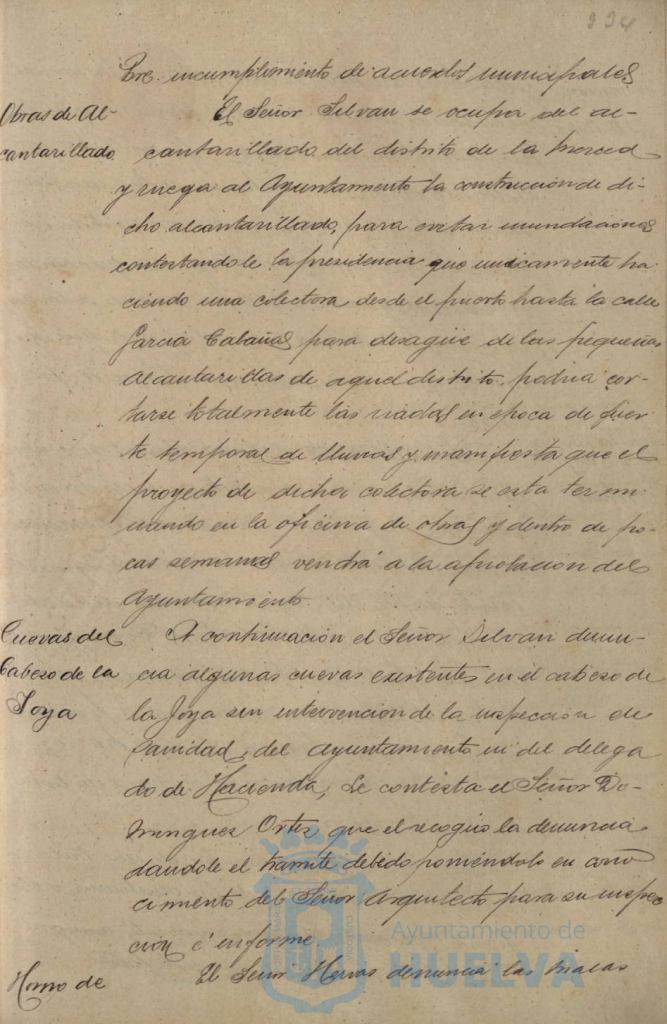 234
Pre. incumplimiento de acuerdos municipales
Obras de Al-
cantarillado
El Señor Silvan se ocupa del al-
cantarillado del distrito de la Merced
y ruega al Ayuntamiento la construccion de di-
cho alcantarillado, para evitar inundaciones
contestandole la presidencia que unicamente ha
ciendo una colectora desde el puerto hasta la calle
Garcia Cabañas para desagüe de las pequeñas
alcantarillas de aquel distrito podria cor-
tarse totalmente las riadas en epoca de fuer-
te temporal de lluvias y manifiesta que el
proyecto de dicha colectora se esta termi-
nando en la oficina de obras y dentro de po-
cas semanas vendrá a la aprobacion del
Ayuntamiento.
Cuevas del
Cabezo de la
Joya
A continuación el Señor Silvan denun-
cia algunas cuevas existentes en el cabezo de
la Joya sin intervencion de la inspección de
Sanidad, del Ayuntamiento ni del delega
do de Hacienda, Le contesta el Señor Do-
minguez Ortiz que el recogió la denuncia
dandole el tramite debido poniendolo en cono
cimiento del Señor Arquitecto para su inspec
cion é informe
Horno de
El Señor Hervas denuncia las malas
Ayuntamiento de
HUELVA